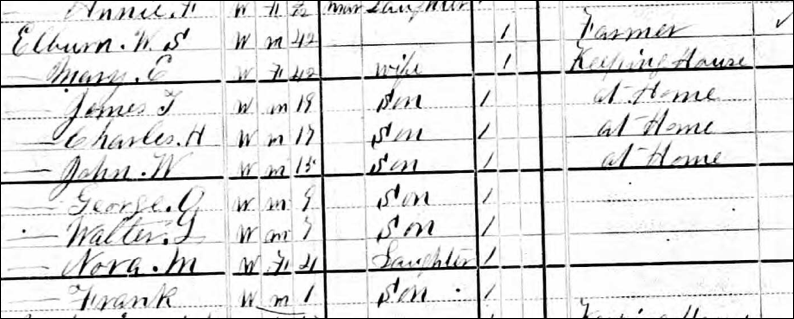 — Annie. F W F Daughter
Elburn. W. S W M 42 1 Farmer
— Mary. E W F 42 Wife 1 Keeping House
— James T W M 19 Son 1 at Home
— Charles. H W M 17 Son 1 at Home
— John. W W M 15 Son 1 at Home
— George. G W M 9 Son 1
— Walter. L W M 7 Son 1
— Nora. M W F 4 Daughter 1
— Frank W M 1 Son 1
Keeping House